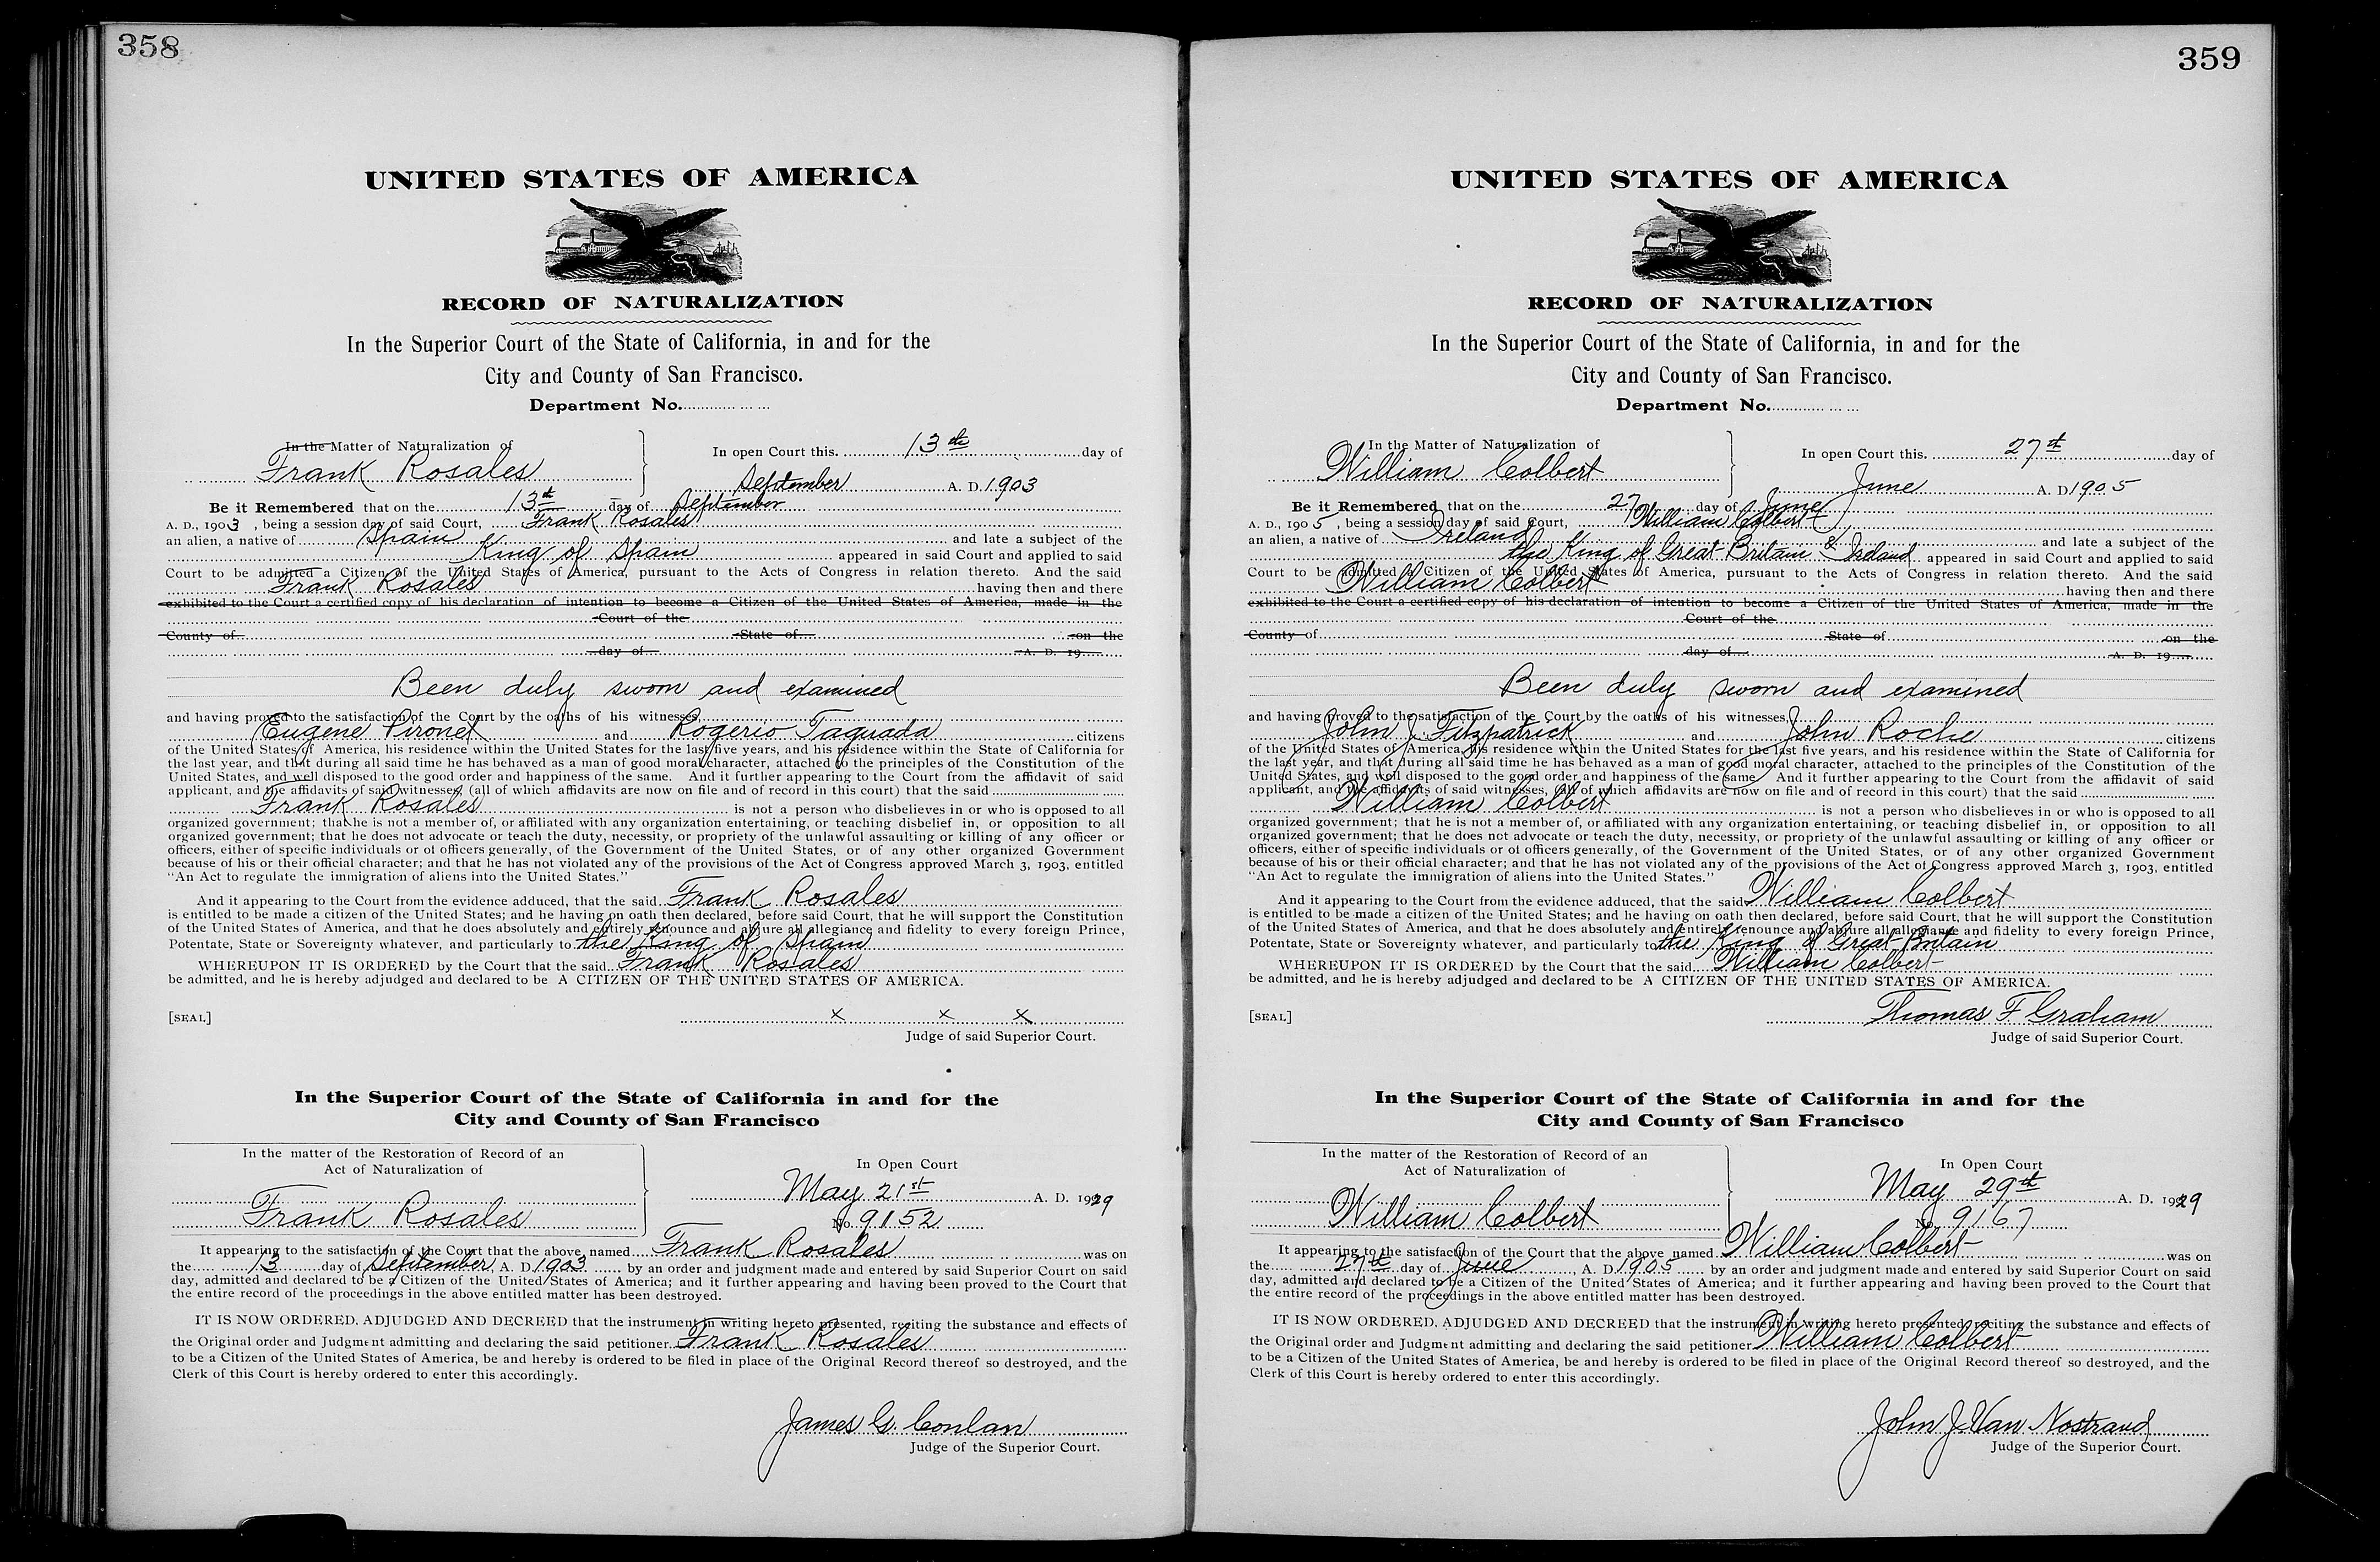 358
UNITED STATES OF AMERICA
RECORD OF NATURALIZATION
In the Superior Court of the State of California, in and for the
City and County of San Francisco.
Department No.
In the Matter of Naturalization of
Frank Rosales
In open Court this 13th day of
September A. D. 1903
Be it Remembered that on the 13th day of September
A. D., 1903, being a session day of said Court, Frank Rosales
an alien, a native of Spain and late a subject of the
King of Spain appeared in said Court and applied to said
Court to be admitted a Citizen of the United States of America, pursuant to the Acts of Congress in relation thereto. And the said
Frank Rosales having then and there
exhibited to the Court a certified copy of his declaration of intention to become a Citizen of the United States of America, made in the
Court of the
County of State of on the
day of A. D. 19
Been duly sworn and examined
and having proved to the satisfaction of the Court by the oaths of his witnesses,
Eugene Pironet and Rogerio Taguada citizens
of the United States of America, his residence within the United States for the last five years, and his residence within the State of California for
the last year, and that during all said time he has behaved as a man of good moral character, attached to the principles of the Constitution of the
United States, and well disposed to the good order and happiness of the same. And it further appearing to the Court from the affidavit of said
applicant, and the affidavits of said witnesses, (all of which affidavits are now on file and of record in this court) that the said
Frank Rosales is not a person who disbelieves in or who is opposed to all
organized government; that he is not a member of, or affiliated with any organization entertaining, or teaching disbelief in, or opposition to all
organized government; that he does not advocate or teach the duty, necessity, or propriety of the unlawful assaulting or killing of any officer or
officers, either of specific individuals or of officers generally, of the Government of the United States, or of any other organized Government
because of his or their official character; and that he has not violated any of the provisions of the Act of Congress approved March 3, 1903, entitled
"An Act to regulate the immigration of aliens into the United States."
And it appearing to the Court from the evidence adduced, that the said Frank Rosales
is entitled to be made a citizen of the United States; and he having on oath then declared, before said Court, that he will support the Constitution
of the United States of America, and that he does absolutely and entirely renounce and abjure all allegiance and fidelity to every foreign Prince,
Potentate, State or Sovereignty whatever, and particularly to the King of Spain
WHEREUPON IT IS ORDERED by the Court that the said Frank Rosales
be admitted, and he is hereby adjudged and declared to be A CITIZEN OF THE UNITED STATES OF AMERICA.
[SEAL] x x x
Judge of said Superior Court.
In the Superior Court of the State of California in and for the
City and County of San Francisco
In the matter of the Restoration of Record of an
Act of Naturalization of
Frank Rosales
In Open Court
May 21st A. D. 1929
No. 9152
It appearing to the satisfaction of the Court that the above named Frank Rosales was on
the 13 day of September, A. D. 1903 by an order and judgment made and entered by said Superior Court on said
day, admitted and declared to be a Citizen of the United States of America; and it further appearing and having been proved to the Court that
the entire record of the proceedings in the above entitled matter has been destroyed.
IT IS NOW ORDERED, ADJUDGED AND DECREED that the instrument in writing hereto presented, reciting the substance and effects of
the Original order and Judgment admitting and declaring the said petitioner Frank Rosales
to be a Citizen of the United States of America, be and hereby is ordered to be filed in place of the Original Record thereof so destroyed, and the
Clerk of this Court is hereby ordered to enter this accordingly.
James G. Conlan
Judge of the Superior Court.
359
UNITED STATES OF AMERICA
RECORD OF NATURALIZATION
In the Superior Court of the State of California, in and for the
City and County of San Francisco.
Department No.
In the Matter of Naturalization of
William Colbert
In open Court this 27th day of
June A. D. 1905
Be it Remembered that on the 27 day of June
A. D., 1905, being a session day of said Court, William Colbert
an alien, a native of Ireland and late a subject of the
the King of Great Britain & Ireland appeared in said Court and applied to said
Court to be admitted a Citizen of the United States of America, pursuant to the Acts of Congress in relation thereto. And the said
William Colbert having then and there
exhibited to the Court a certified copy of his declaration of intention to become a Citizen of the United States of America, made in the
Court of the
County of State of on the
day of A. D. 19
Been duly sworn and examined
and having proved to the satisfaction of the Court by the oaths of his witnesses,
John J. Fitzpatrick and John Roche citizens
of the United States of America, his residence within the United States for the last five years, and his residence within the State of California for
the last year, and that during all said time he has behaved as a man of good moral character, attached to the principles of the Constitution of the
United States, and well disposed to the good order and happiness of the same. And it further appearing to the Court from the affidavit of said
applicant, and the affidavits of said witnesses, (all of which affidavits are now on file and of record in this court) that the said
William Colbert is not a person who disbelieves in or who is opposed to all
organized government; that he is not a member of, or affiliated with any organization entertaining, or teaching disbelief in, or opposition to all
organized government; that he does not advocate or teach the duty, necessity, or propriety of the unlawful assaulting or killing of any officer or
officers, either of specific individuals or of officers generally, of the Government of the United States, or of any other organized Government
because of his or their official character; and that he has not violated any of the provisions of the Act of Congress approved March 3, 1903, entitled
"An Act to regulate the immigration of aliens into the United States."
And it appearing to the Court from the evidence adduced, that the said William Colbert
is entitled to be made a citizen of the United States; and he having on oath then declared, before said Court, that he will support the Constitution
of the United States of America, and that he does absolutely and entirely renounce and abjure all allegiance and fidelity to every foreign Prince,
Potentate, State or Sovereignty whatever, and particularly to the King of Great Britain
WHEREUPON IT IS ORDERED by the Court that the said William Colbert
be admitted, and he is hereby adjudged and declared to be A CITIZEN OF THE UNITED STATES OF AMERICA.
[SEAL] Thomas F Graham
Judge of said Superior Court.
In the Superior Court of the State of California in and for the
City and County of San Francisco
In the matter of the Restoration of Record of an
Act of Naturalization of
William Colbert
In Open Court
May 29th A. D. 1929
No. 9167
It appearing to the satisfaction of the Court that the above named William Colbert was on
the 27th day of June, A. D. 1905 by an order and judgment made and entered by said Superior Court on said
day, admitted and declared to be a Citizen of the United States of America; and it further appearing and having been proved to the Court that
the entire record of the proceedings in the above entitled matter has been destroyed.
IT IS NOW ORDERED, ADJUDGED AND DECREED that the instrument in writing hereto presented, reciting the substance and effects of
the Original order and Judgment admitting and declaring the said petitioner William Colbert
to be a Citizen of the United States of America, be and hereby is ordered to be filed in place of the Original Record thereof so destroyed, and the
Clerk of this Court is hereby ordered to enter this accordingly.
John J. Van Nostrand
Judge of the Superior Court.